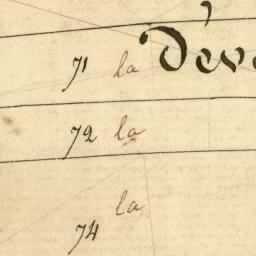 71 la Dev
72 la
la
74